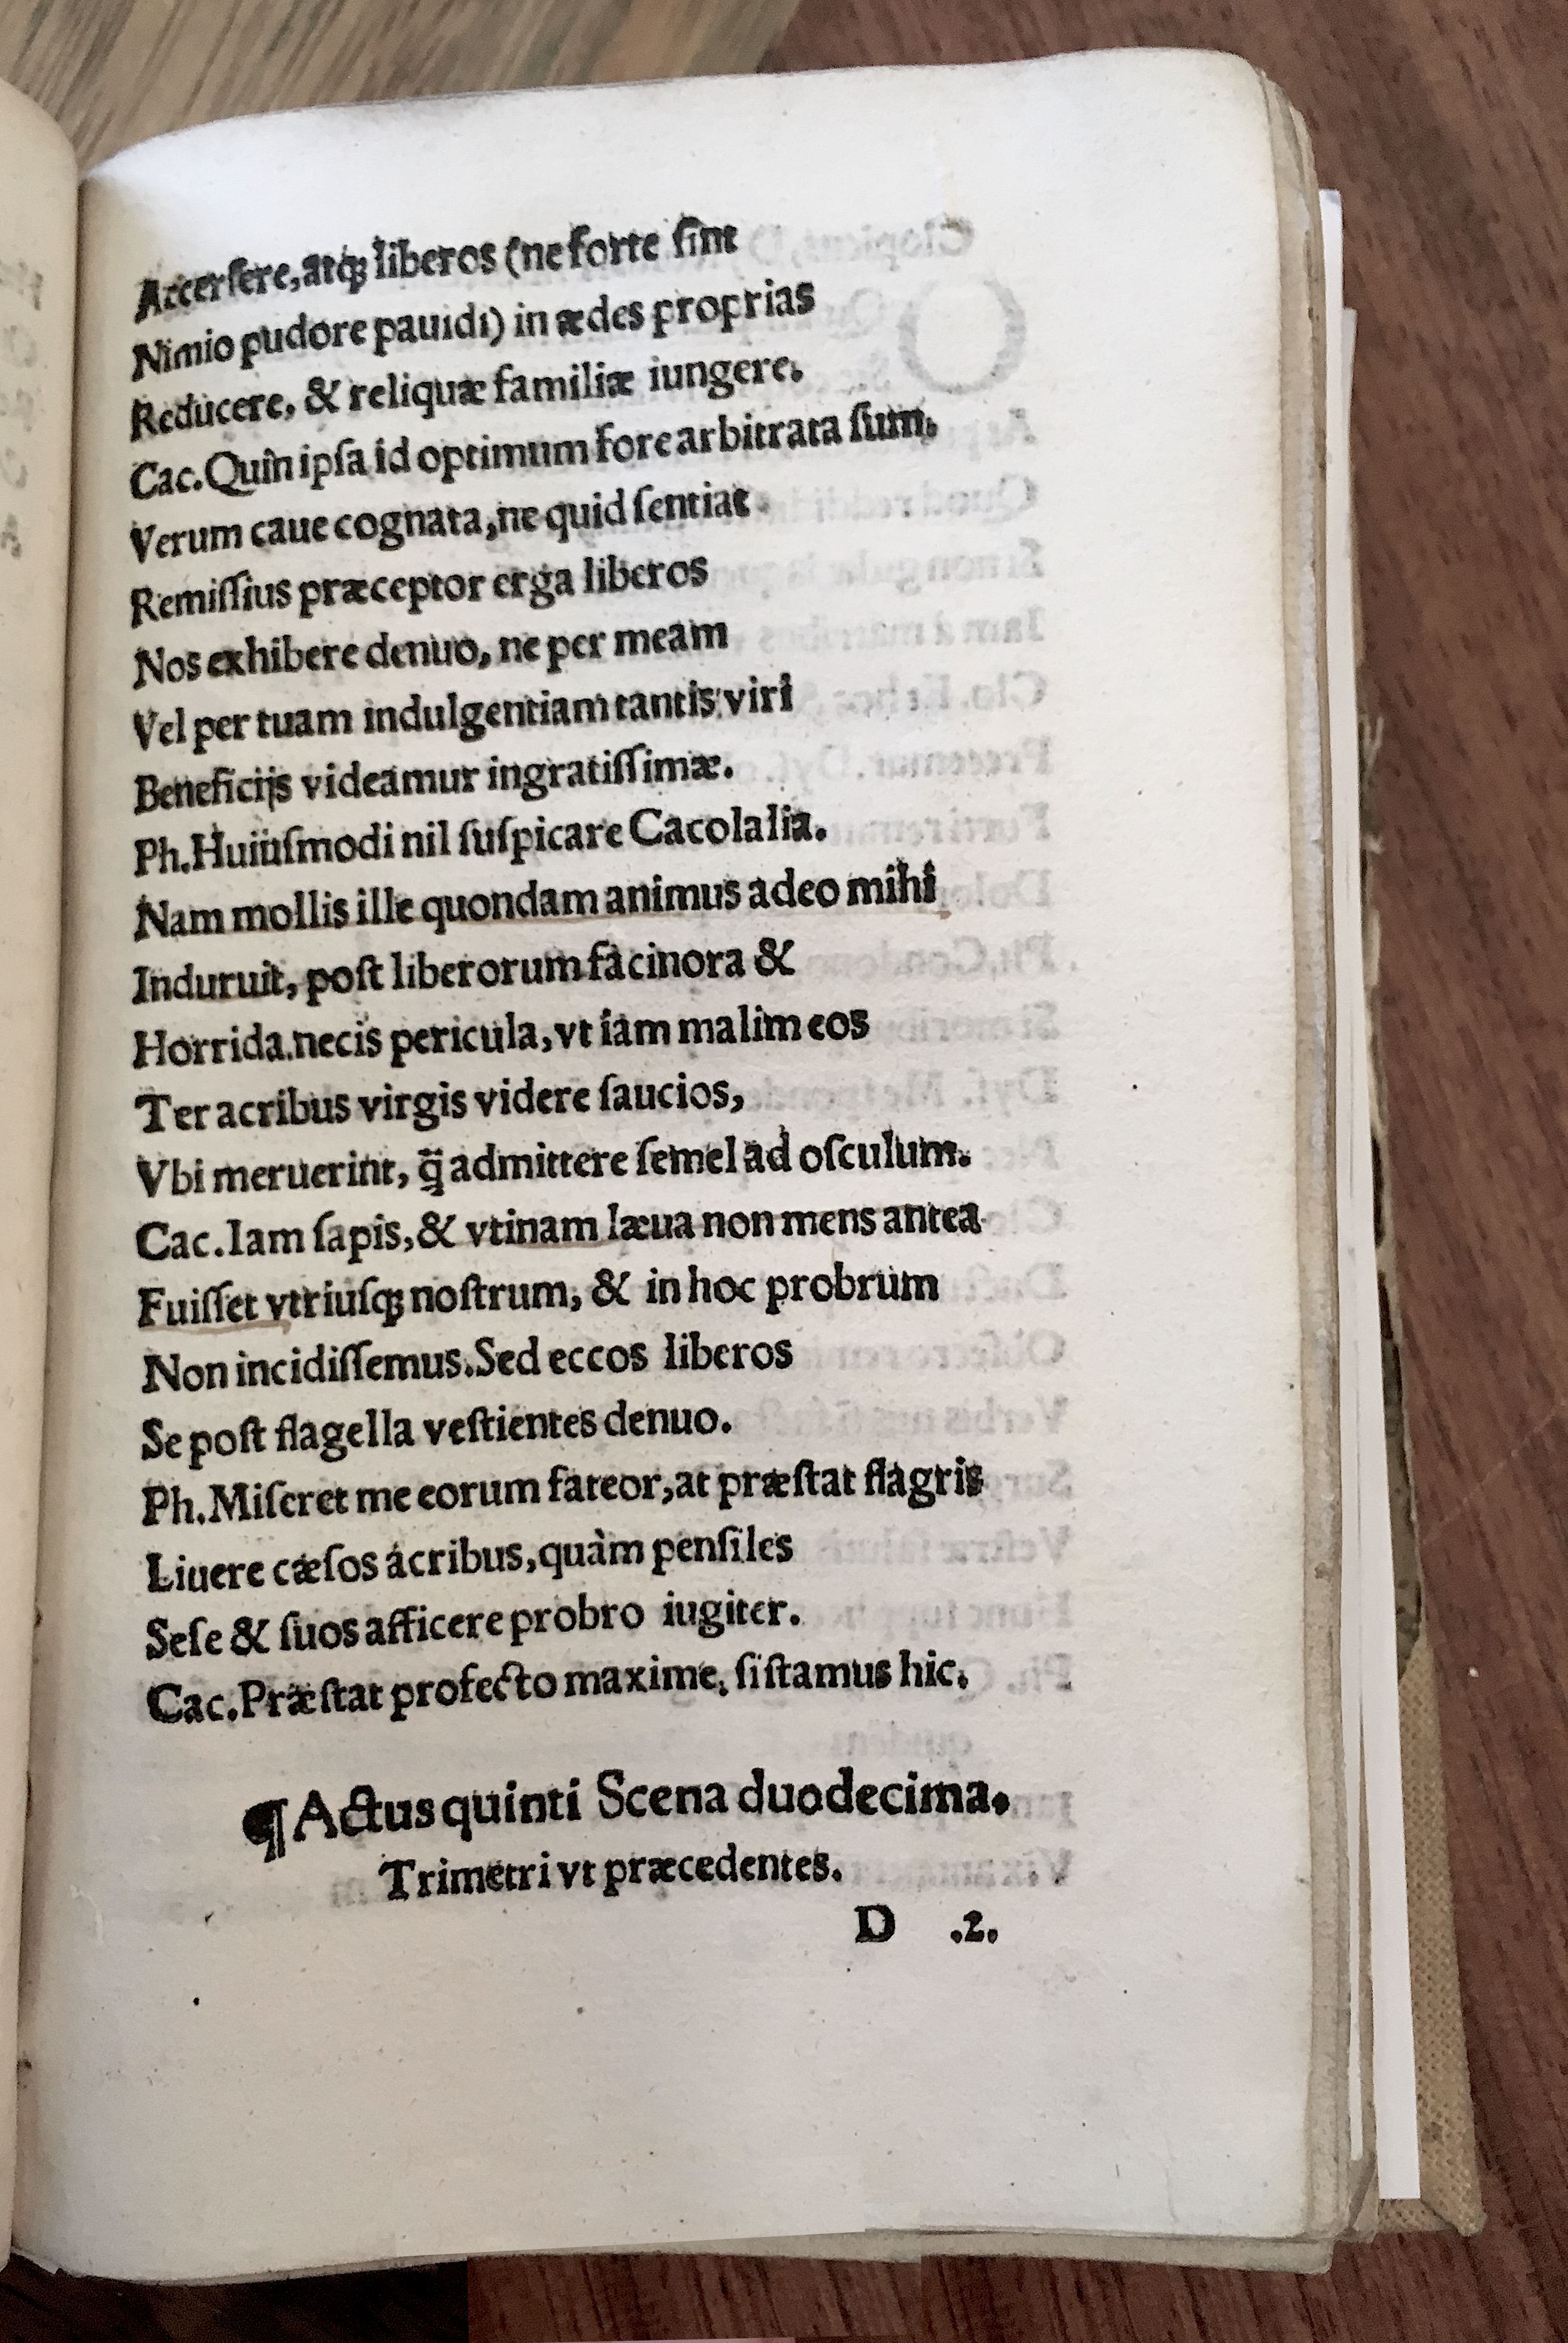 Accerſere, atq; liberos (ne forte ſint
Nimio pudore pauidi) in ædes proprias
Reducere, & reliquæ familiæ iungere.
Cac. Quin ipſa id optimum fore arbitrata ſum.
Verum caue cognata, ne quid ſentiat
Remiſſius præceptor erga liberos
Nos exhibere denuo, ne per meam
Vel per tuam indulgentiam tantis viri
Beneficijs videamur ingratiſſimæ.
Ph. Huiuſmodi nil ſuſpicare Cacolalia.
Nam mollis ille quondam animus adeo mihi
Induruit, poſt liberorum facinora &
Horrida necis pericula, vt iam malim eos
Ter acribus virgis videre ſaucios,
Vbi meruerint, q̃ admittere ſemel ad oſculum.
Cac. Iam ſapis, & vtinam læua non mens antea
Fuiſſet vtriuſq; noſtrum, & in hoc probrum
Non incidiſſemus. Sed eccos liberos
Se poſt flagella veſtientes denuo.
Ph. Miſeret me eorum fateor, at præſtat flagris
Liuere cæſos acribus, quàm penſiles
Seſe & ſuos afficere probro iugiter.
Cac. Præſtat profecto maxime, ſiſtamus hic.
¶ Actus quinti Scena duodecima.
Trimetri vt præcedentes.
D .2.